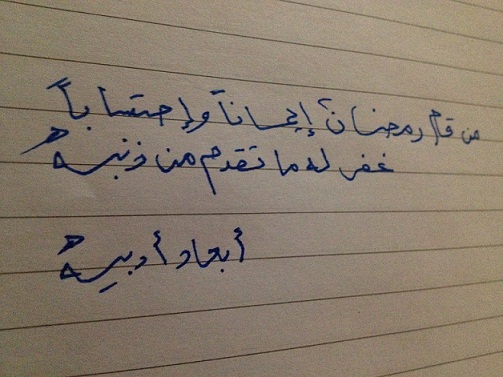 من قام رمضان إيماناً وإحتساباً
غفر له ما تقدم من ذنبه
أبعاد أدبية